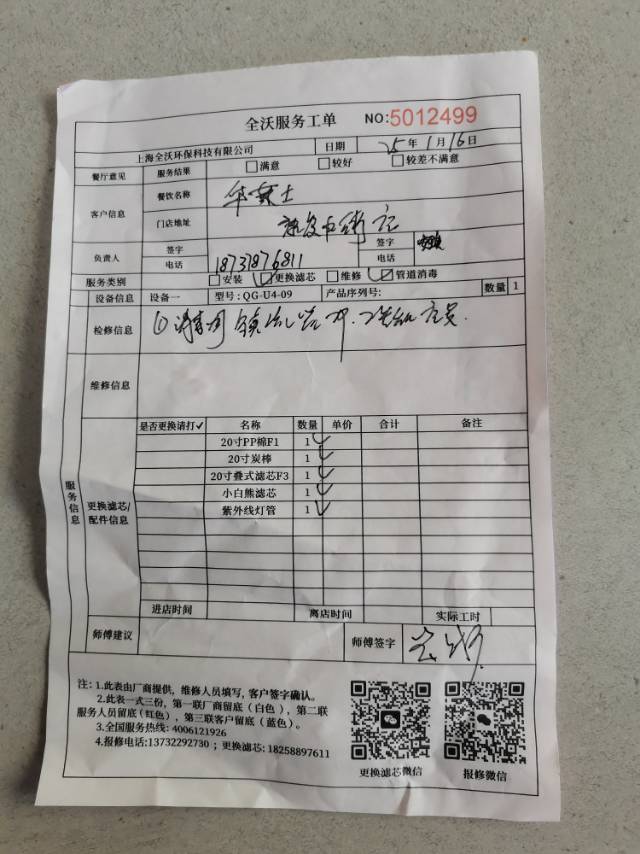 全沃服务工单 NO:5012499
上海全沃环保科技有限公司 日期 25年1月16日
餐厅意见 服务结果 满意 较好 较差不满意
客户信息 餐饮名称 华莱士
门店地址
负责人 签字 签字
电话 18731876811 电话
服务类别 安装 更换滤芯 维修 管道消毒
设备信息 设备一 型号: QG-U4-09 产品序列号: 数量 1
检修信息
维修信息
服务信息
更换滤芯/配件信息
是否更换请打✓ 名称 数量 单价 合计 备注
20寸PP棉F1 1 ✓
20寸炭棒 1 ✓
20寸叠式滤芯F3 1 ✓
小白熊滤芯 1 ✓
紫外线灯管 1 ✓
进店时间 离店时间 实际工时
师傅建议 师傅签字
注: 1.此表由厂商提供, 维修人员填写, 客户签字确认。
2.此表一式三份, 第一联厂商留底(白色), 第二联
服务人员留底(红色), 第三联客户留底(蓝色)。
3.全国服务热线: 4006121926
4.报修电话:13732292730 ; 更换滤芯: 18258897611
更换滤芯微信 报修微信